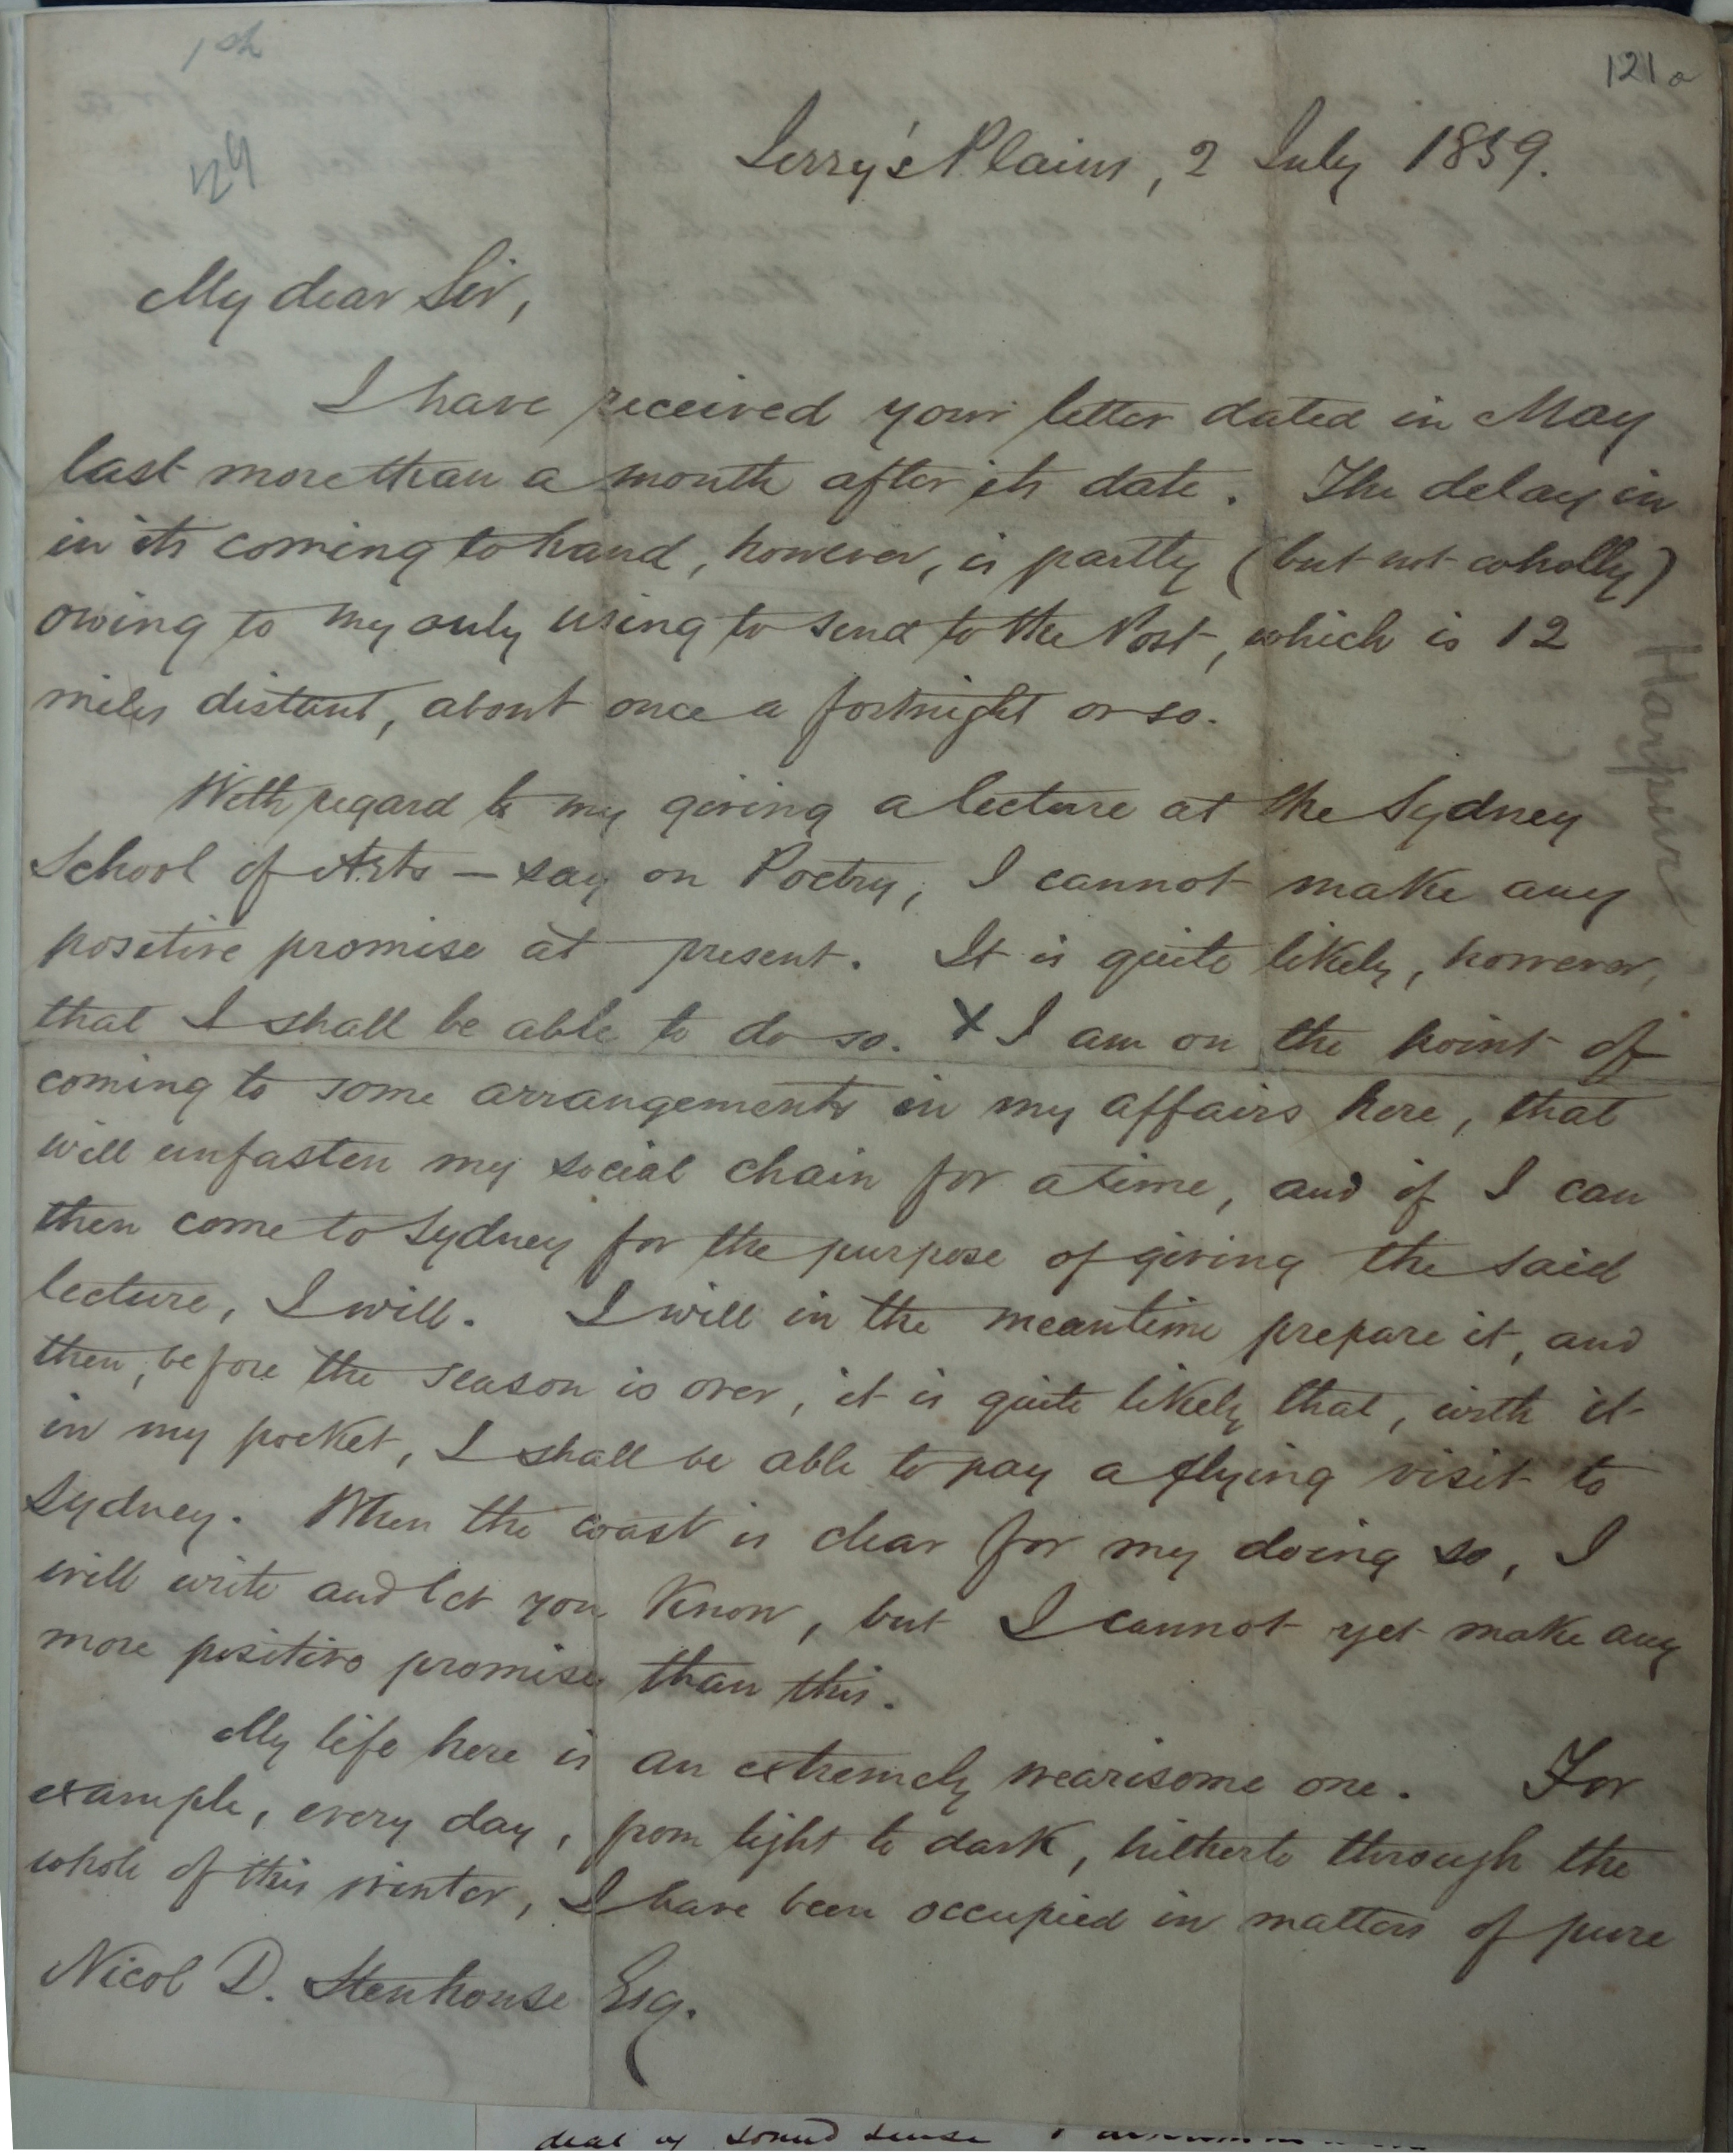 121a
Jerry's Plains, 2 July 1859.
My dear Sir,
I have received your letter dated in May
last more than a month after its date. The delay in
in its coming to hand, however, is partly (but not wholly)
owing to my only using to send to the Post, which is 12
miles distant, about once a fortnight or so.
Harpur
With regard to my giving a lecture at the Sydney
School of Arts — say on Poetry, I cannot make any
positive promise at present. It is quite likely, however,
that I shall be able to do so. X I am on the point of
coming to some arrangements in my affairs here, that
will unfasten my social chain for a time, and if I can
then come to Sydney for the purpose of giving the said
lecture, I will. I will in the meantime prepare it, and
then, before the season is over, it is quite likely that, with it
in my pocket, I shall be able to pay a flying visit to
Sydney. When the coast is clear for my doing so, I
will write and let you know, but I cannot yet make any
more positive promise than this.
My life here is an extremely wearisome one. For
example, every day, from light to dark, hitherto through the
whole of this winter, I have been occupied in matters of pure
Nicol D. Stenhouse Esq.
deal of sound sense